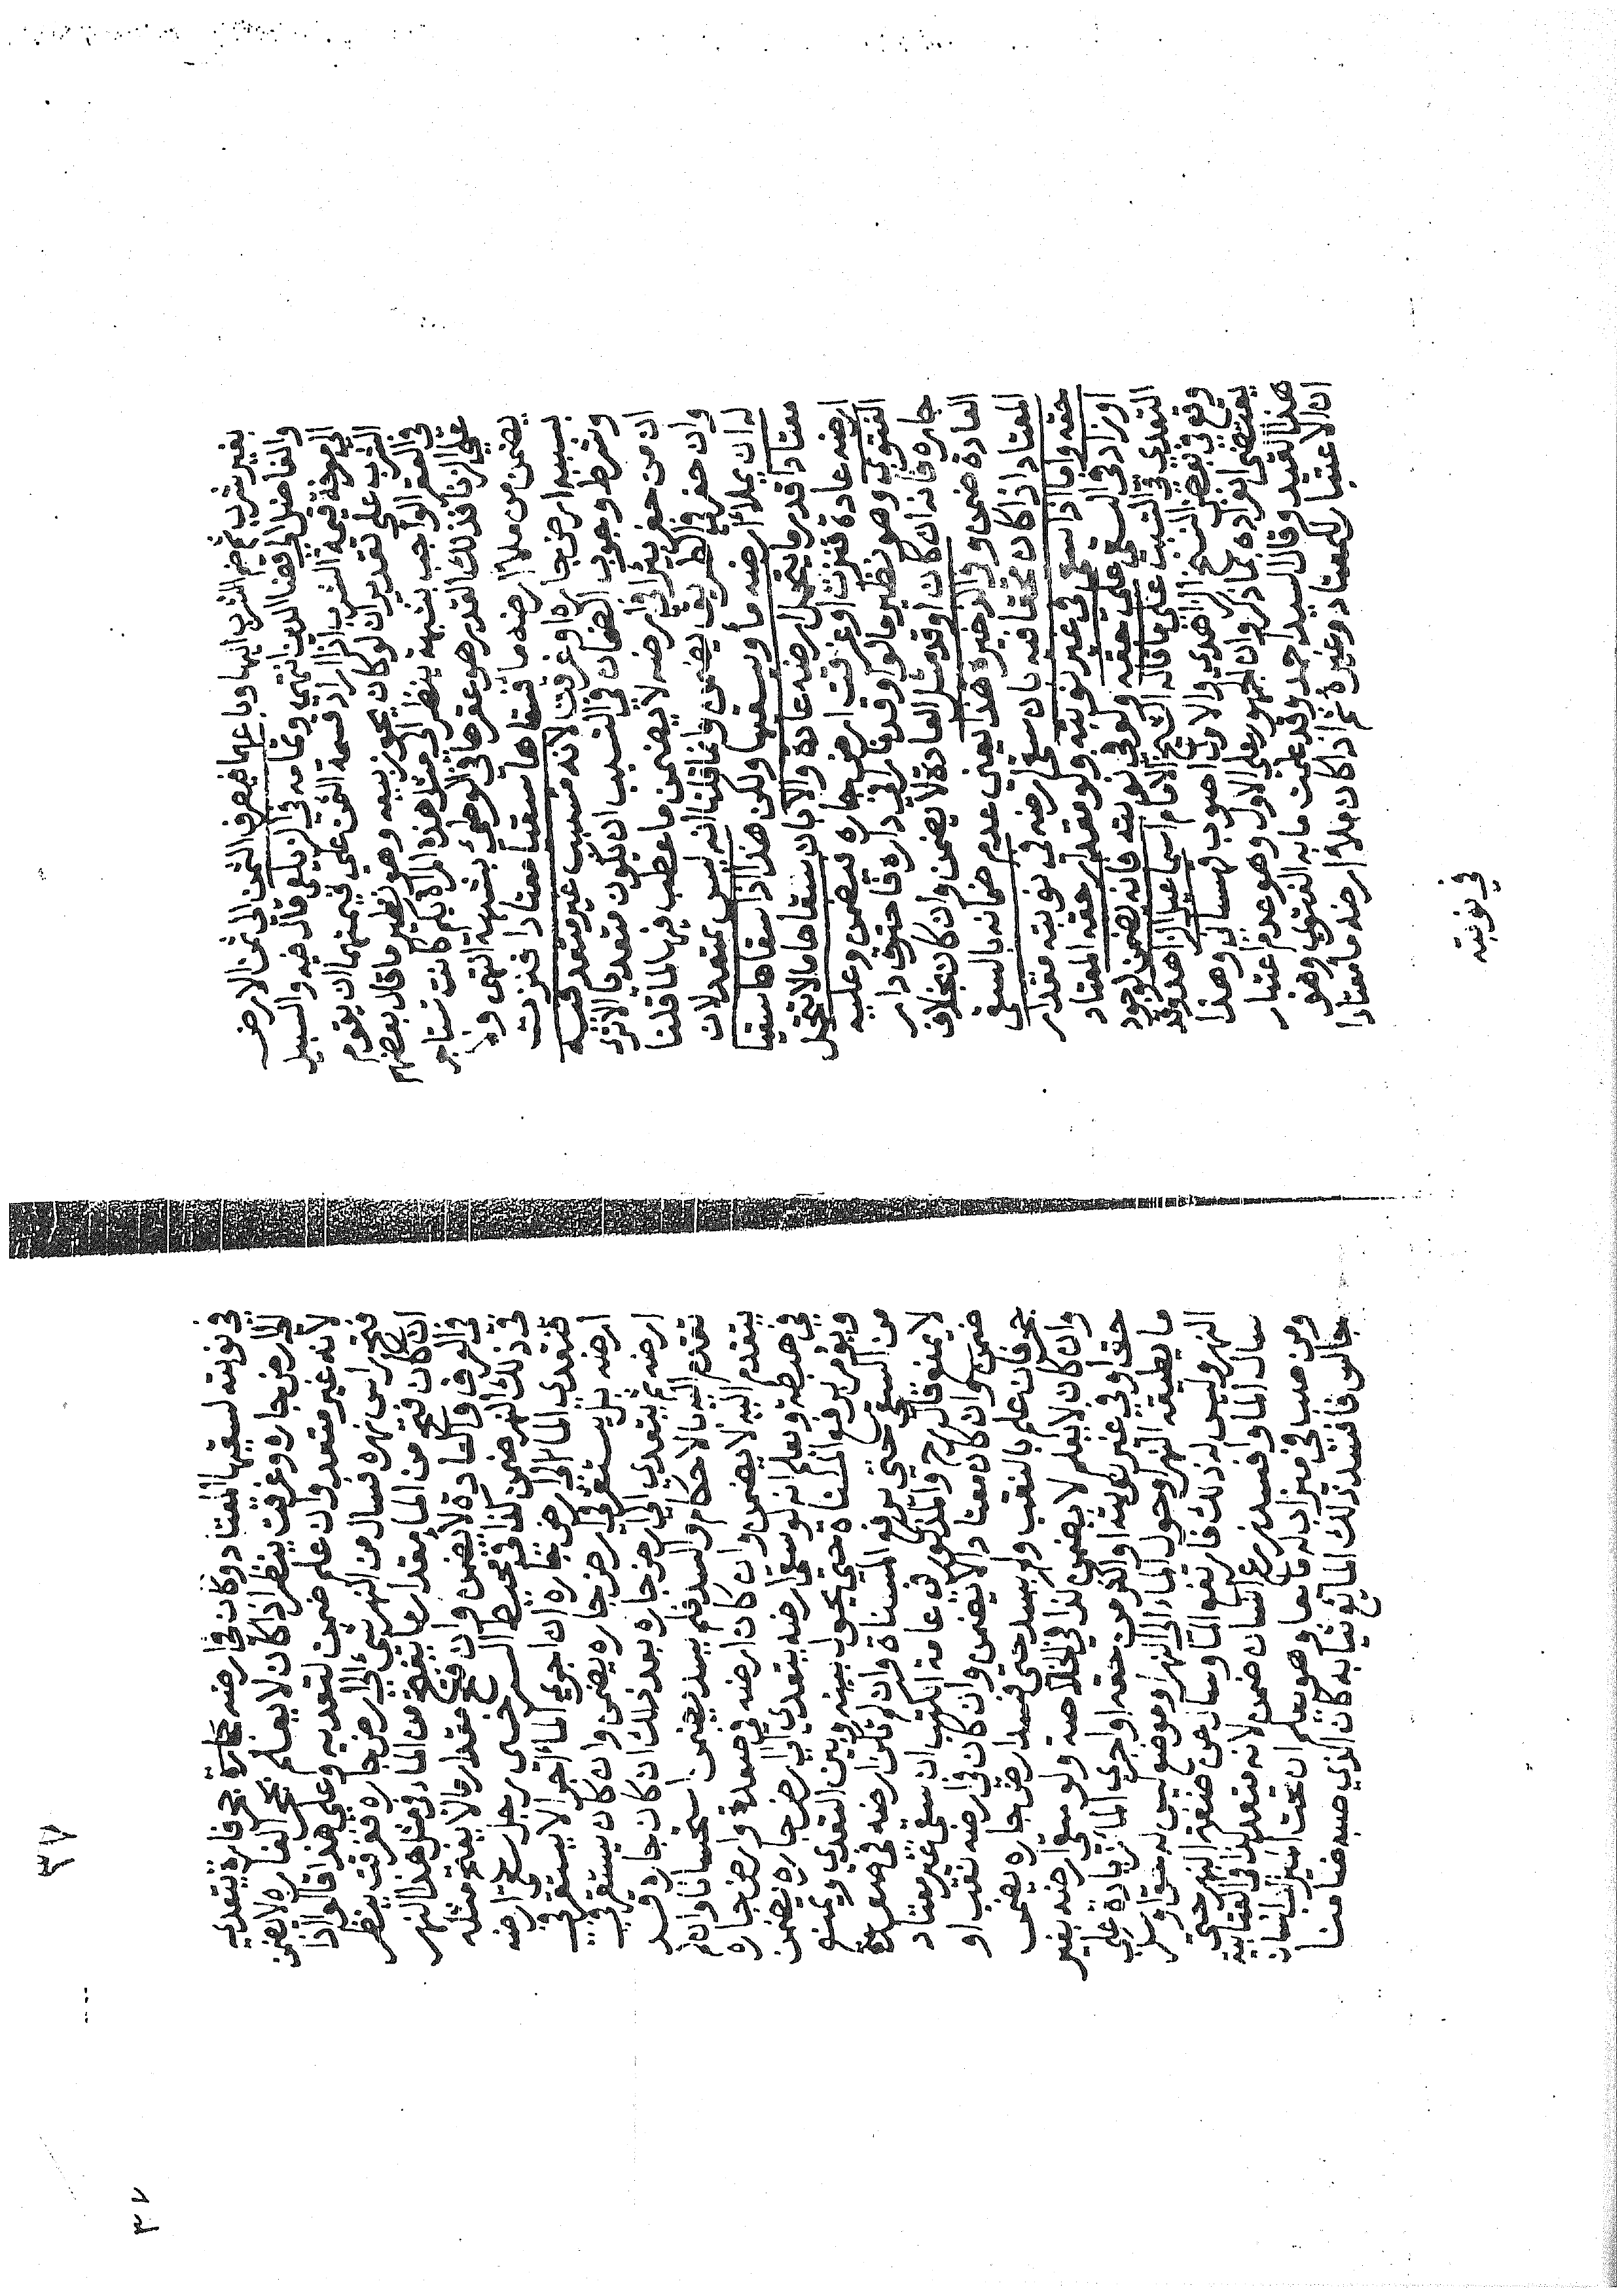 بغير شرب ثم ضم الشرب اليها وباعهما فيصرف الثمن الى ثمن الارض
والفاضل الى قضا الدين انتهى وتمامه في الزيلعي قال فيه والسبيل
الى معرفة قيمة الشرب اذا اراد قسمة الثمن على قيمتهما ان يقوم
الشرب على تقدير ان لو كان يجوز بيعه وهو نظير ما قال بعضهم
في العقر الواجب بشبهة ينظر الى مثل هذه المراة بكم كانت تستاجر
على الزنا فذلك القدر هو عقرها في الوطئ بشبهة انتهى ولا
يضمن من ملأ ارضه ما فسقاها سقيا معتادا فنزت
بسببه ارض جاره او غرقت لانه متسبب غير متعد فيه
وشرط وجوب الضمان في التسبب ان يكون متعديا الا ترى
ان من حفر بئرا في ارضه لا يضمن ما عطب فيها لما قلنا
وان حفر في الطريق يضمن وانما قلنا انه ليس بمتعد لان
له ان يملأ ارضه ما ويسقيها ولكن هذا اذا سقاها سقيا
معتادا قدر ما يتحمل ارضه عادة والا بان سقاها ما لا تتحمل
ارضه عادة فنزت او غرقت ارض جاره فيضمن وعليه
الفتوى وهو نظير ما لو اوقد نارا في داره فاحترق دار
جاره فانه ان كان اوقد مثل العادة لا يضمن وان كان بخلاف
العادة ضمن وفي الذخيرة هذا يعني عدم ضمانه بالسقي
المعتاد اذا كان محقا فيه بان سقى ارضه في نوبته مقدار
حقه واما اذا سقى في غير نوبته ولو مقدار حقه المعتاد
او زاد في السقي على حقه ولو في نوبته فانه يضمن لوجود
التعدي في التسبب على ما قاله الشيخ الامام اسماعيل الزاهد وقد
وقع في بعض النسخ الزاهدي والاول اصوب فهستاني وهذا
يقتضى انفراده بما ذكر وان الجمهور على الاول وهو عدم اعتبار
هذا القيد وقال السيد احمد وقد علمت ما به الفتوى وهو
ان الاعتبار للمعتاد وغيره ثم اذا كان ملأ ارضه ما معتادا
في نوبته
في نوبته لسقيها المعتاد وكان في ارضه حجارة جحر فارة يتعدى
الى ارض جاره وغرقت ينظر اذا كان لا يعلم بجحر الفاره لا يضمن
لانه غير متعد وان علم ضمن لتعديه وعلى هذا قالوا اذا
فتح راس نهره فسال من النهر شيء الى ارض جاره فغرقت ينظر
ان كان فتح من الما مقدار ما يفتح من الماء في مثل هذا النهر
في العرف والعادة لا يضمن وان فتح مقدار ما لا يفتح مثله
في ذلك النهر ضمن كذا في محيط السرخسى رجل سقى ارضه
فتعدى الما الى ارض جاره ان اجرى الما اجرا لا يستقر في
ارضه بل يستقر في ارض جاره يضمن وان كان يستقر في
ارضه ثم يتعدى الى ارض جاره بعد ذلك ان كان جاره قد
تقدم اليه بالاحكام والسد فلم يسد يضمن استحسانا وان لم
يتقدم اليه لا يضمن وان كان ارضه في صعدة وارض جاره
في هبطة ويعلم انه لو سقى ارضه يتعدى الى ارض جاره يضمن
ويؤمر برفع المسناة حتى يحول بينه وبين التعدي ويمنع
من السقى حتى يرفع المسناة وان لم تكن ارضه في صعدة
لا يمنع قال رح والمذكور في عامة الكتب ان سقى غير معتاد
ضمن وان كان معتادا لا يضمن وان كان في ارضه ثقب او
جحر فان علم بالثقب ولم يسد حتى فسد ارض جاره يضمن
وان كان لا يعلم لا يضمن كذا في الخلاصة ولو سقى ارضه بغير
حق او في غير نوبته او اكثر من حقه او اجرى الما زيادة على
ما يطيقه النهر او حول الماء الى النهر او موضع ليس له حق او سد
النهر وليس له ذلك فارتفع الما وسال من ضفة النهر حتى
سال الما وافسد زرع انسان ضمن لانه متعد كذا في الغياثية
ومن صب في ميزاب له مايعا وهو يعلم ان تحت الميزاب انسان
جالس فافسد ذلك المايع ثيابه كان الذي صب ضامنا
٣٧
٣٧